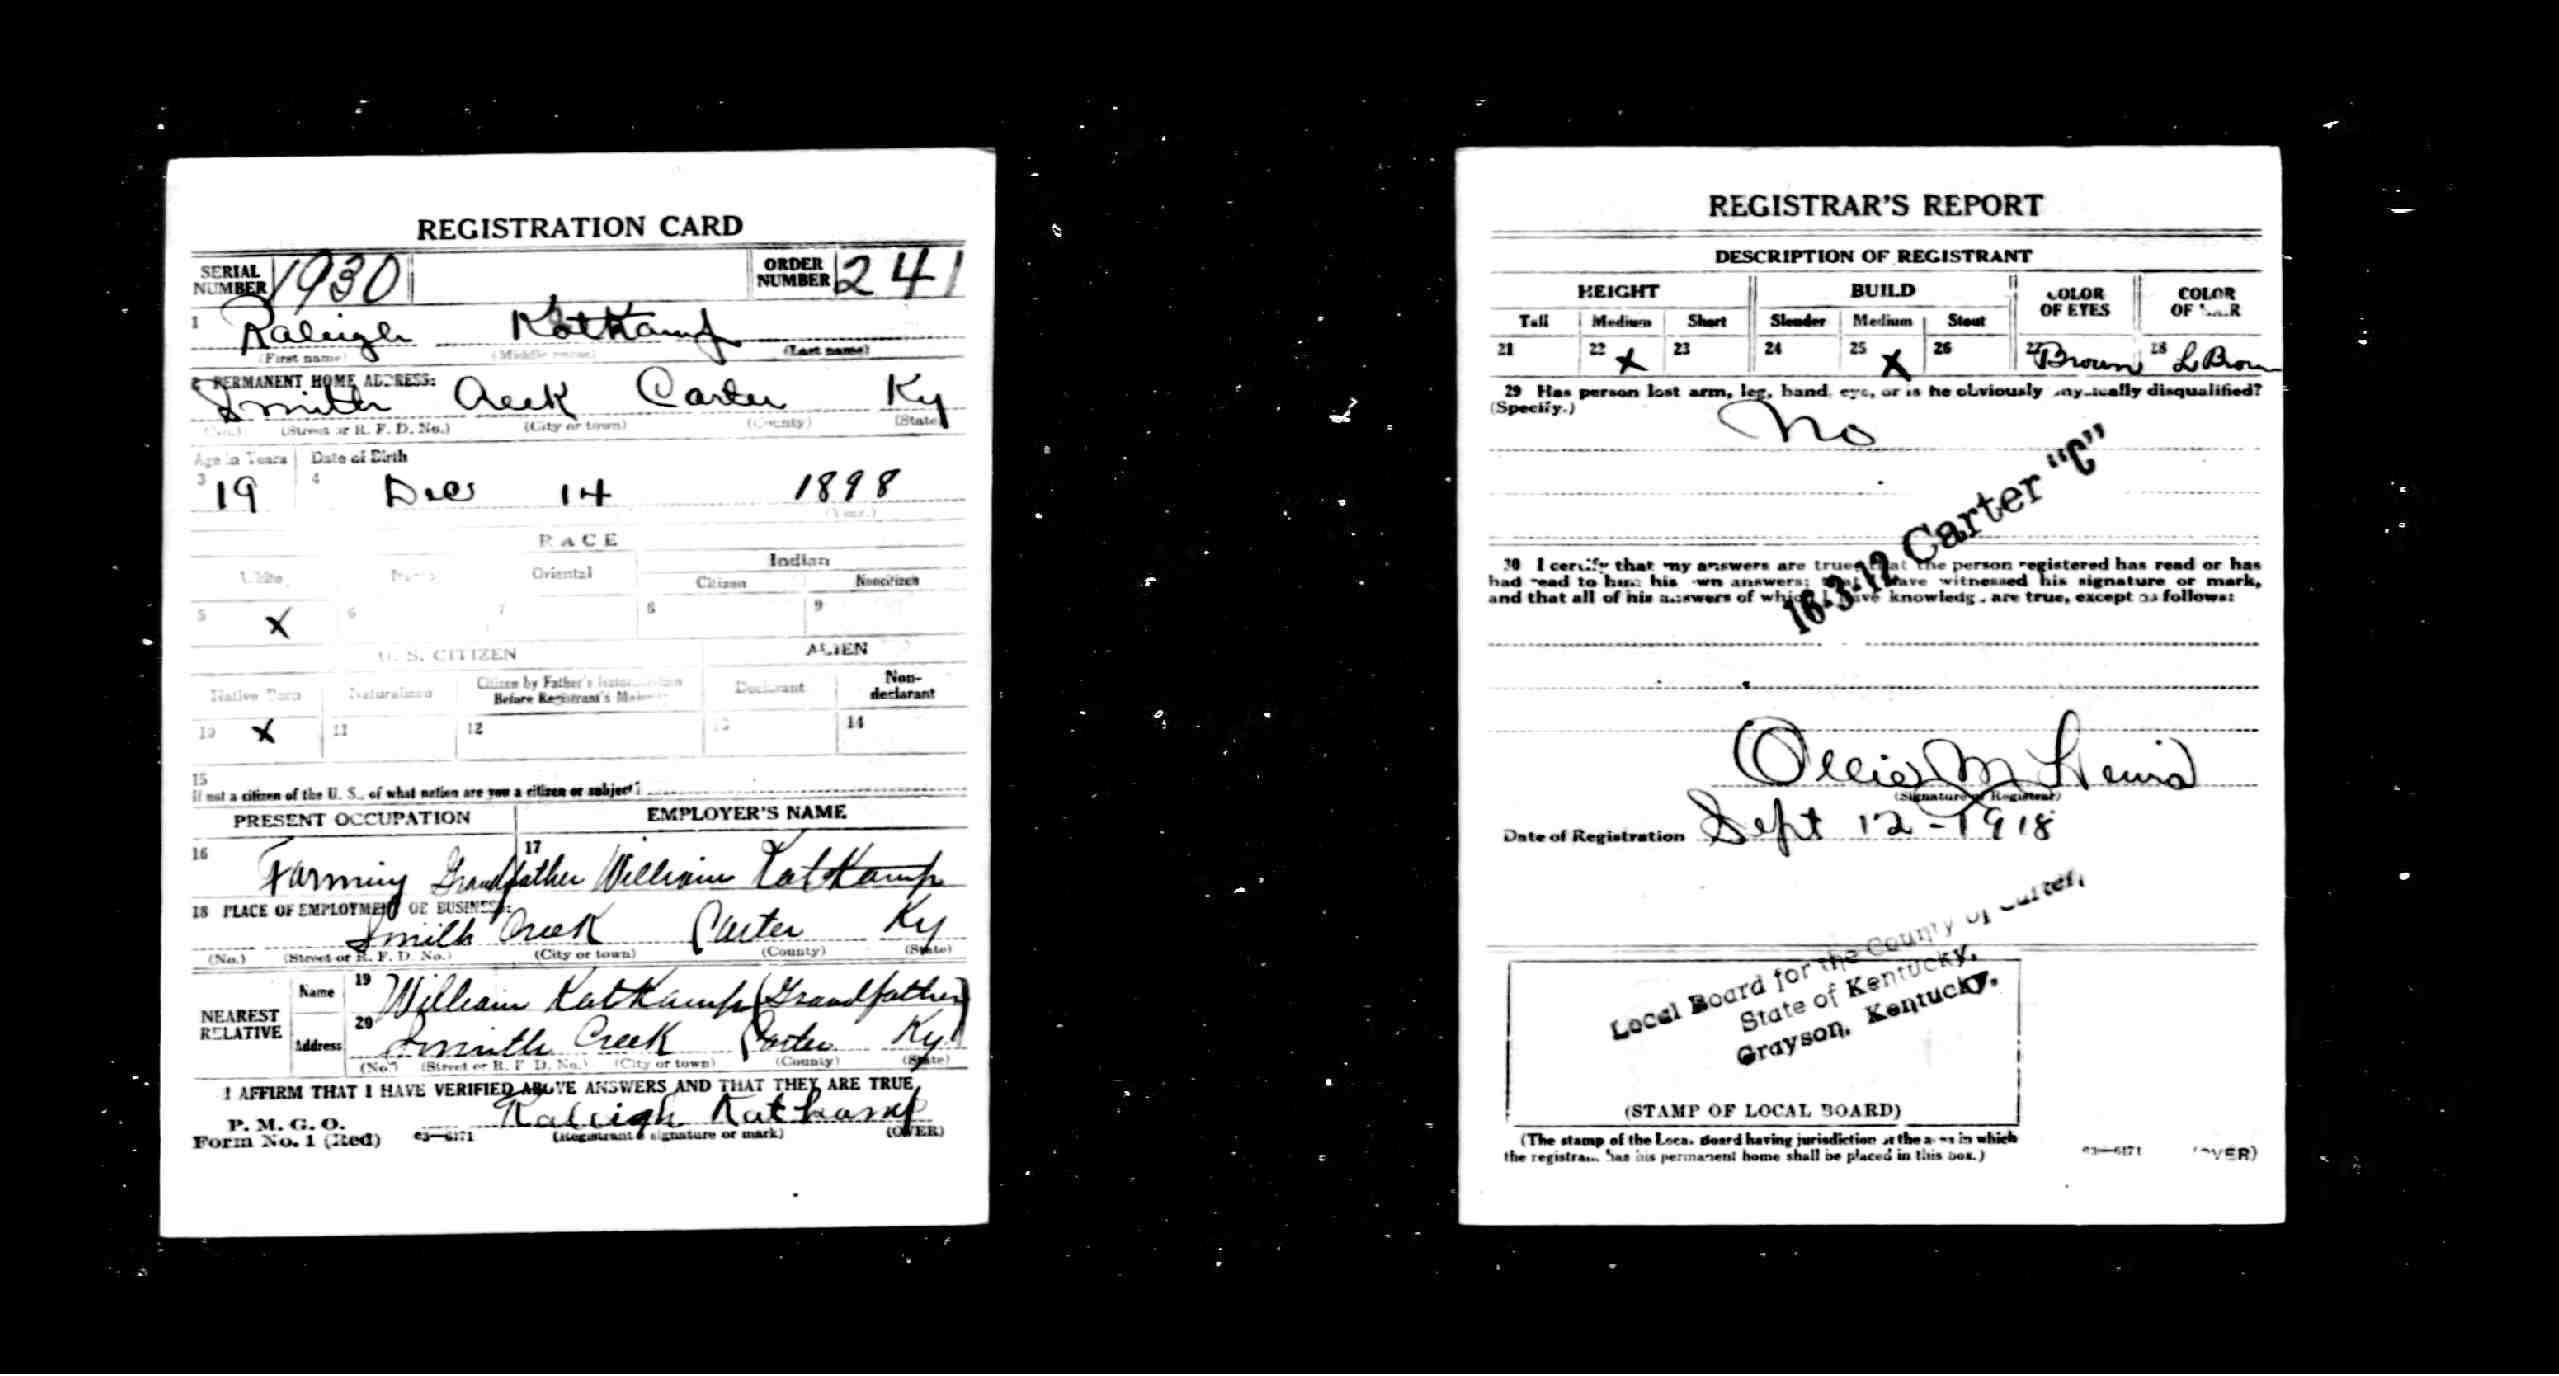 REGISTRATION CARD
SERIAL NUMBER 1930 ORDER NUMBER 241
1 Raleigh Kotkamp
(First name) (Middle name) (Last name)
2 PERMANENT HOME ADDRESS:
Smith Creek Carter Ky
(No.) (Street or R. F. D. No.) (City or town) (County) (State)
Age in Years Date of Birth
3 19 4 Dec 14 1898
(Year.)
RACE
White Negro Oriental Indian
Citizen Noncitizen
5 X 6 7 8 9
U. S. CITIZEN ALIEN
Native Born Naturalized Citizen by Father's Naturalization Before Registrant's Majority Declarant Non-declarant
10 X 11 12 13 14
15
If not a citizen of the U. S., of what nation are you a citizen or subject?
PRESENT OCCUPATION EMPLOYER'S NAME
16 Farming 17 Grandfather William KatKamp
18 PLACE OF EMPLOYMENT OR BUSINESS:
Smith Creek Carter Ky
(No.) (Street or R. F. D. No.) (City or town) (County) (State)
NEAREST RELATIVE
Name 19 William KatKamp (Grandfather)
Address 20 Smith Creek Carter Ky
(No.) (Street or R. F. D. No.) (City or town) (County) (State)
I AFFIRM THAT I HAVE VERIFIED ABOVE ANSWERS AND THAT THEY ARE TRUE
P. M. G. O.
Form No. 1 (Red) 03—6171 Raleigh Katkamp
(Registrant's signature or mark) (OVER)
REGISTRAR'S REPORT
DESCRIPTION OF REGISTRANT
HEIGHT BUILD COLOR OF EYES COLOR OF HAIR
Tall Medium Short Slender Medium Stout
21 22 X 23 24 25 X 26 27 Brown 28 L Brown
29 Has person lost arm, leg, hand, eye, or is he obviously physically disqualified?
(Specify.) No
16-3-12 Carter "C"
30 I certify that my answers are true; that the person registered has read or has
had read to him his own answers; that I have witnessed his signature or mark,
and that all of his answers of which I have knowledge are true, except as follows:
Ollie M
(Signature of Registrar)
Date of Registration Sept 12 - 1918
Local Board for the County of Carter,
State of Kentucky,
Grayson, Kentucky.
(STAMP OF LOCAL BOARD)
(The stamp of the Local Board having jurisdiction of the area in which
the registrant has his permanent home shall be placed in this box.)
03—6171 (OVER)